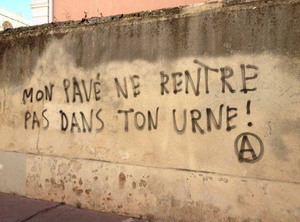 MON PAVÉ NE RENTRE
PAS DANS TON URNE!
Ⓐ